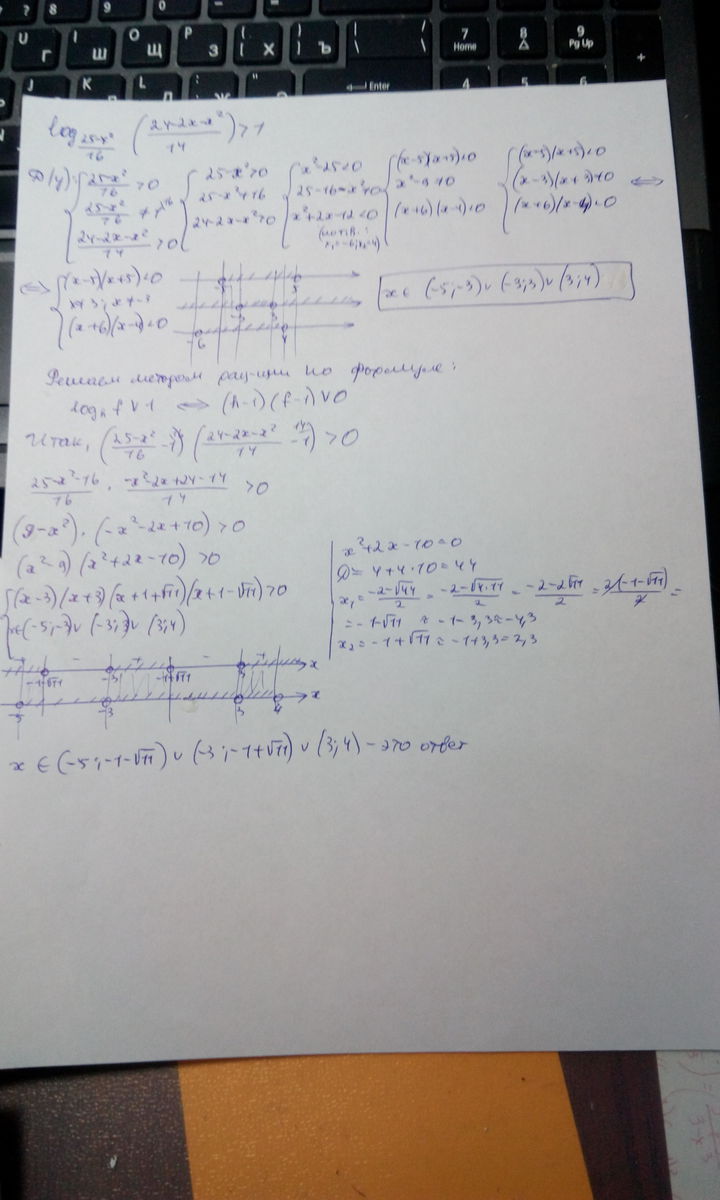 8 9 0 - =
U Г I Ш O Щ P З { [ X } ] Ъ \ 7 Home 8 9 Pg Up
J K L Д : ; Ж " Enter 4 5 6 +
log_{(25-x²)/16} ((24-2x-x²)/14) > 1
D(y): { (25-x²)/16 > 0 { 25-x² > 0 { x²-25 < 0 { (x-5)(x+5) < 0 { (x-5)(x+5) < 0
(25-x²)/16 ≠ 1^{\16} 25-x² ≠ 16 25-16-x² ≠ 0 x²-9 ≠ 0 (x-3)(x+3) ≠ 0 ⇔
(24-2x-x²)/14 > 0 24-2x-x² > 0 x²+2x-12 < 0 (x+6)(x-4) < 0 (x+6)(x-4) < 0
x₁=-6; x₂=4)
⇔ { (x-5)(x+5) < 0 -5 5 x ∈ (-5;-3) ∪ (-3;3) ∪ (3;4)
x ≠ 3; x ≠ -3 -3 3
(x+6)(x-4) < 0 -6 4
Решаем методом рац-ции по формуле:
log_h f ∨ 1 ⇔ (h-1)(f-1) ∨ 0
Итак, ((25-x²)/16 - 1)((24-2x-x²)/14 - 1^{\14}) > 0
(25-x²-16)/16 · (-x²-2x+24-14)/14 > 0
(9-x²)·(-x²-2x+10) > 0
(x²-9)(x²+2x-10) > 0
{ (x-3)(x+3)(x+1+√11)(x+1-√11) > 0
x ∈ (-5;-3) ∪ (-3;3) ∪ (3;4)
x²+2x-10=0
D = 4+4·10 = 44
x₁ = (-2-√44)/2 = (-2-√4·11)/2 = (-2-2√11)/2 = 2(-1-√11)/2 =
= -1-√11 ≈ -1-3,3 ≈ -4,3
x₂ = -1+√11 ≈ -1+3,3 = 2,3
+ - + - + x
-1-√11 -3 -1+√11 3
x
-5 -3 3 4
x ∈ (-5;-1-√11) ∪ (-3;-1+√11) ∪ (3;4) - это ответ